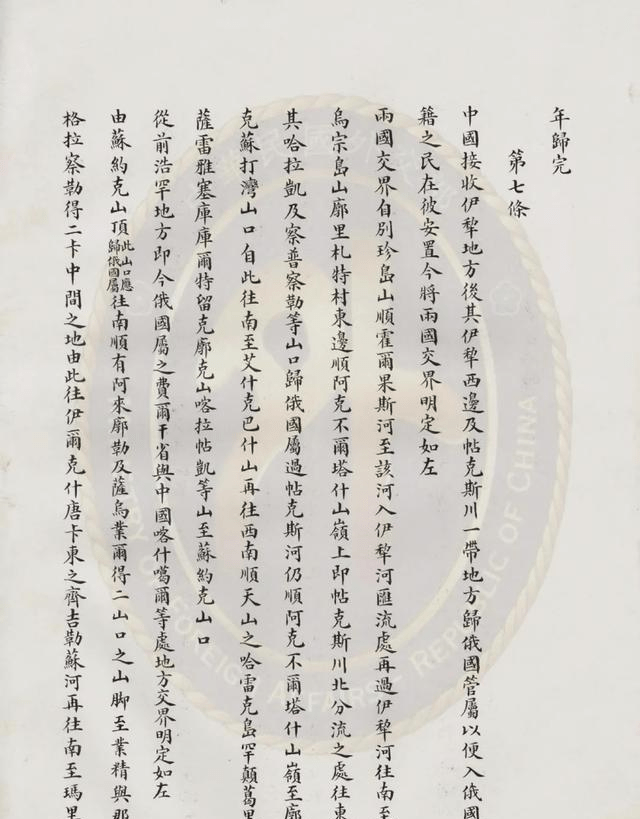 年歸完
第七條
中國接收伊犂地方後其伊犂西邊及帖克斯川一帶地方歸俄國管屬以便入俄國
籍之民在彼安置今將兩國交界明定如左
兩國交界自別珍島山順霍爾果斯河至該河入伊犂河匯流處再過伊犂河往南至
烏宗島山廓里札特村東邊順阿克不爾塔什山嶺上即帖克斯川北分流之處往東
其哈拉凱及察普察勒等山口歸俄國屬過帖克斯河仍順阿克不爾塔什山嶺至廓
克蘇打灣山口自此往南至艾什克巴什山再往西南順天山之哈雷克島罕顛葛里
薩雷雅塞庫庫爾特留克廓克山喀拉帖凱等山至蘇約克山口
從前浩罕地方即今俄國屬之費爾干省與中國喀什噶爾等處地方交界明定如左
由蘇約克山頂此山口應歸俄國屬往南順有阿來廓勒及薩烏業爾得二山口之山脚至業精與那
格拉察勒得二卡中間之地由此往伊爾克什唐卡東之齊吉勒蘇河再往南至瑪里
MINISTRY OF FOREIGN AFFAIRS · REPUBLIC OF CHINA